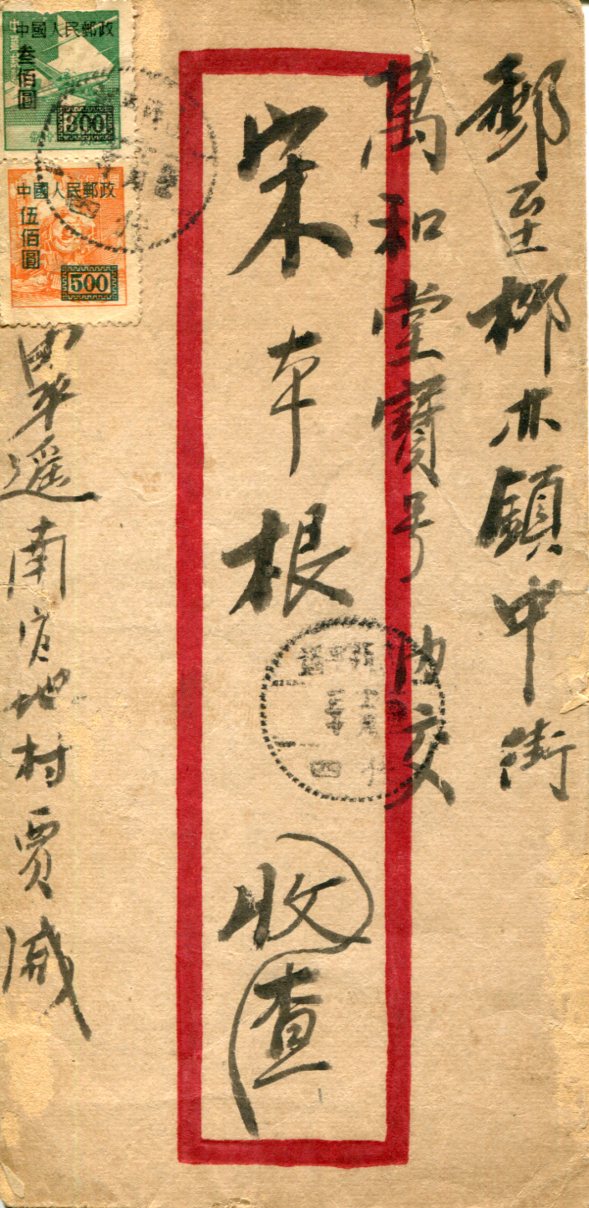 郵至柳林鎮中街
萬和堂寶号 内交
宋本根 收查
平遥南官地村賈諴
中國人民郵政
叁佰圓
300
中國人民郵政
伍佰圓
500